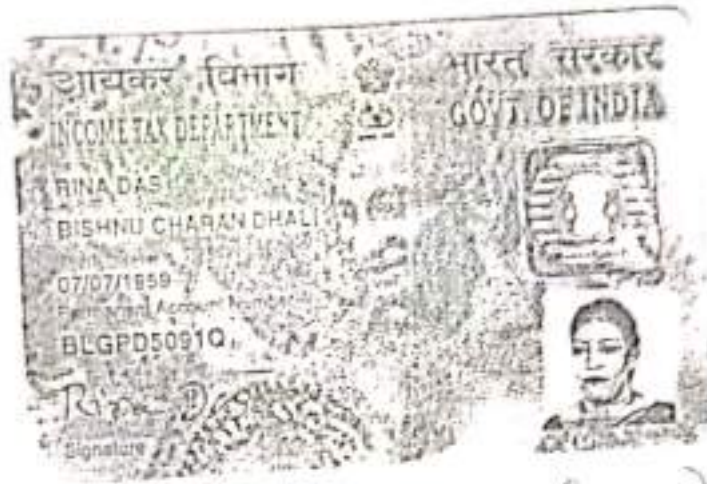 आयकर विभाग
INCOME TAX DEPARTMENT
भारत सरकार
GOVT. OF INDIA
RINA DAS
BISHNU CHARAN DHALI
07/07/1959
Permanent Account Number
BLGPD5091Q
Rina D
Signature